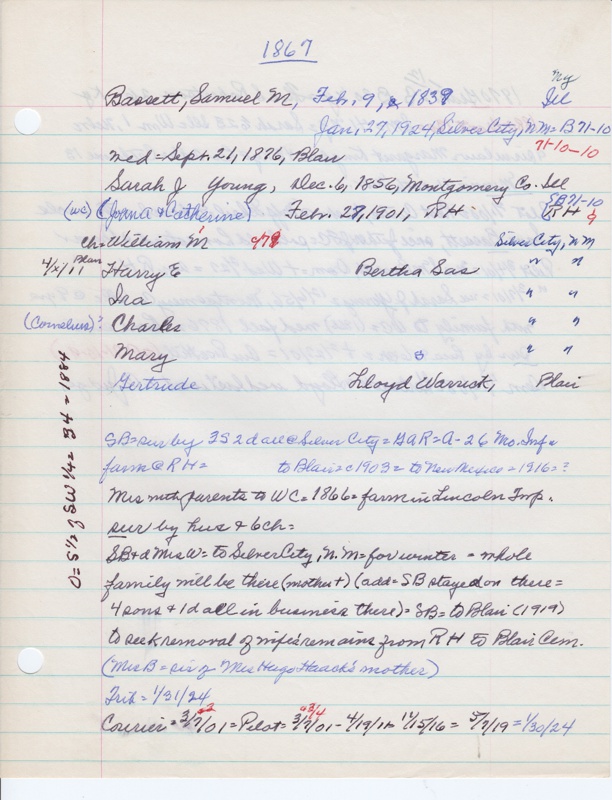 1867
Ny
Bassett, Samuel M, Feb, 9, 1839 Ill
Jan, 27, 1924, Silver City, N M = B71-10
71-10-10
med = Sept. 21, 1876, Blair
Sarah J Young, Dec. 6, 1856, Montgomery Co. Ill
(wc) (John A & Catherine) Febr. 27, 1901, RH - RH
ch = William M c/79 Silver City, N M
4/x/11 Blair Harry E Bertha Sas " "
Ira " "
(Cornelius)? Charles " "
Mary " "
Gertrude Lloyd Warrick, Blair
O = S 1/2 of SW 1/4 = 34 = 1884
SB = sur by 3S 2d all @ Silver City = GAR = A-26 Mo. Inf =
farm @ RH = to Blair = c1903 = to New Mexico = 1916 = ?
Mrs with parents to WC = 1866 = farm in Lincoln Twp.
sur by hus & 6 ch =
SB & d Mrs W = to Silver City, N. M = for winter - whole
family will be there (mother +) (add = SB stayed on there =
4 sons & 1 d all in business there) = SB = to Blair (1919)
to seek removal of wife's remains from RH to Blair Cem.
(Mrs B = sis of Mrs Hugo Haack's mother)
Trib = 1/31/24
Courier = 3/7/01 = Pilot = 3/7/01 - 4/19/11 = 5/7/19 = 1/30/24